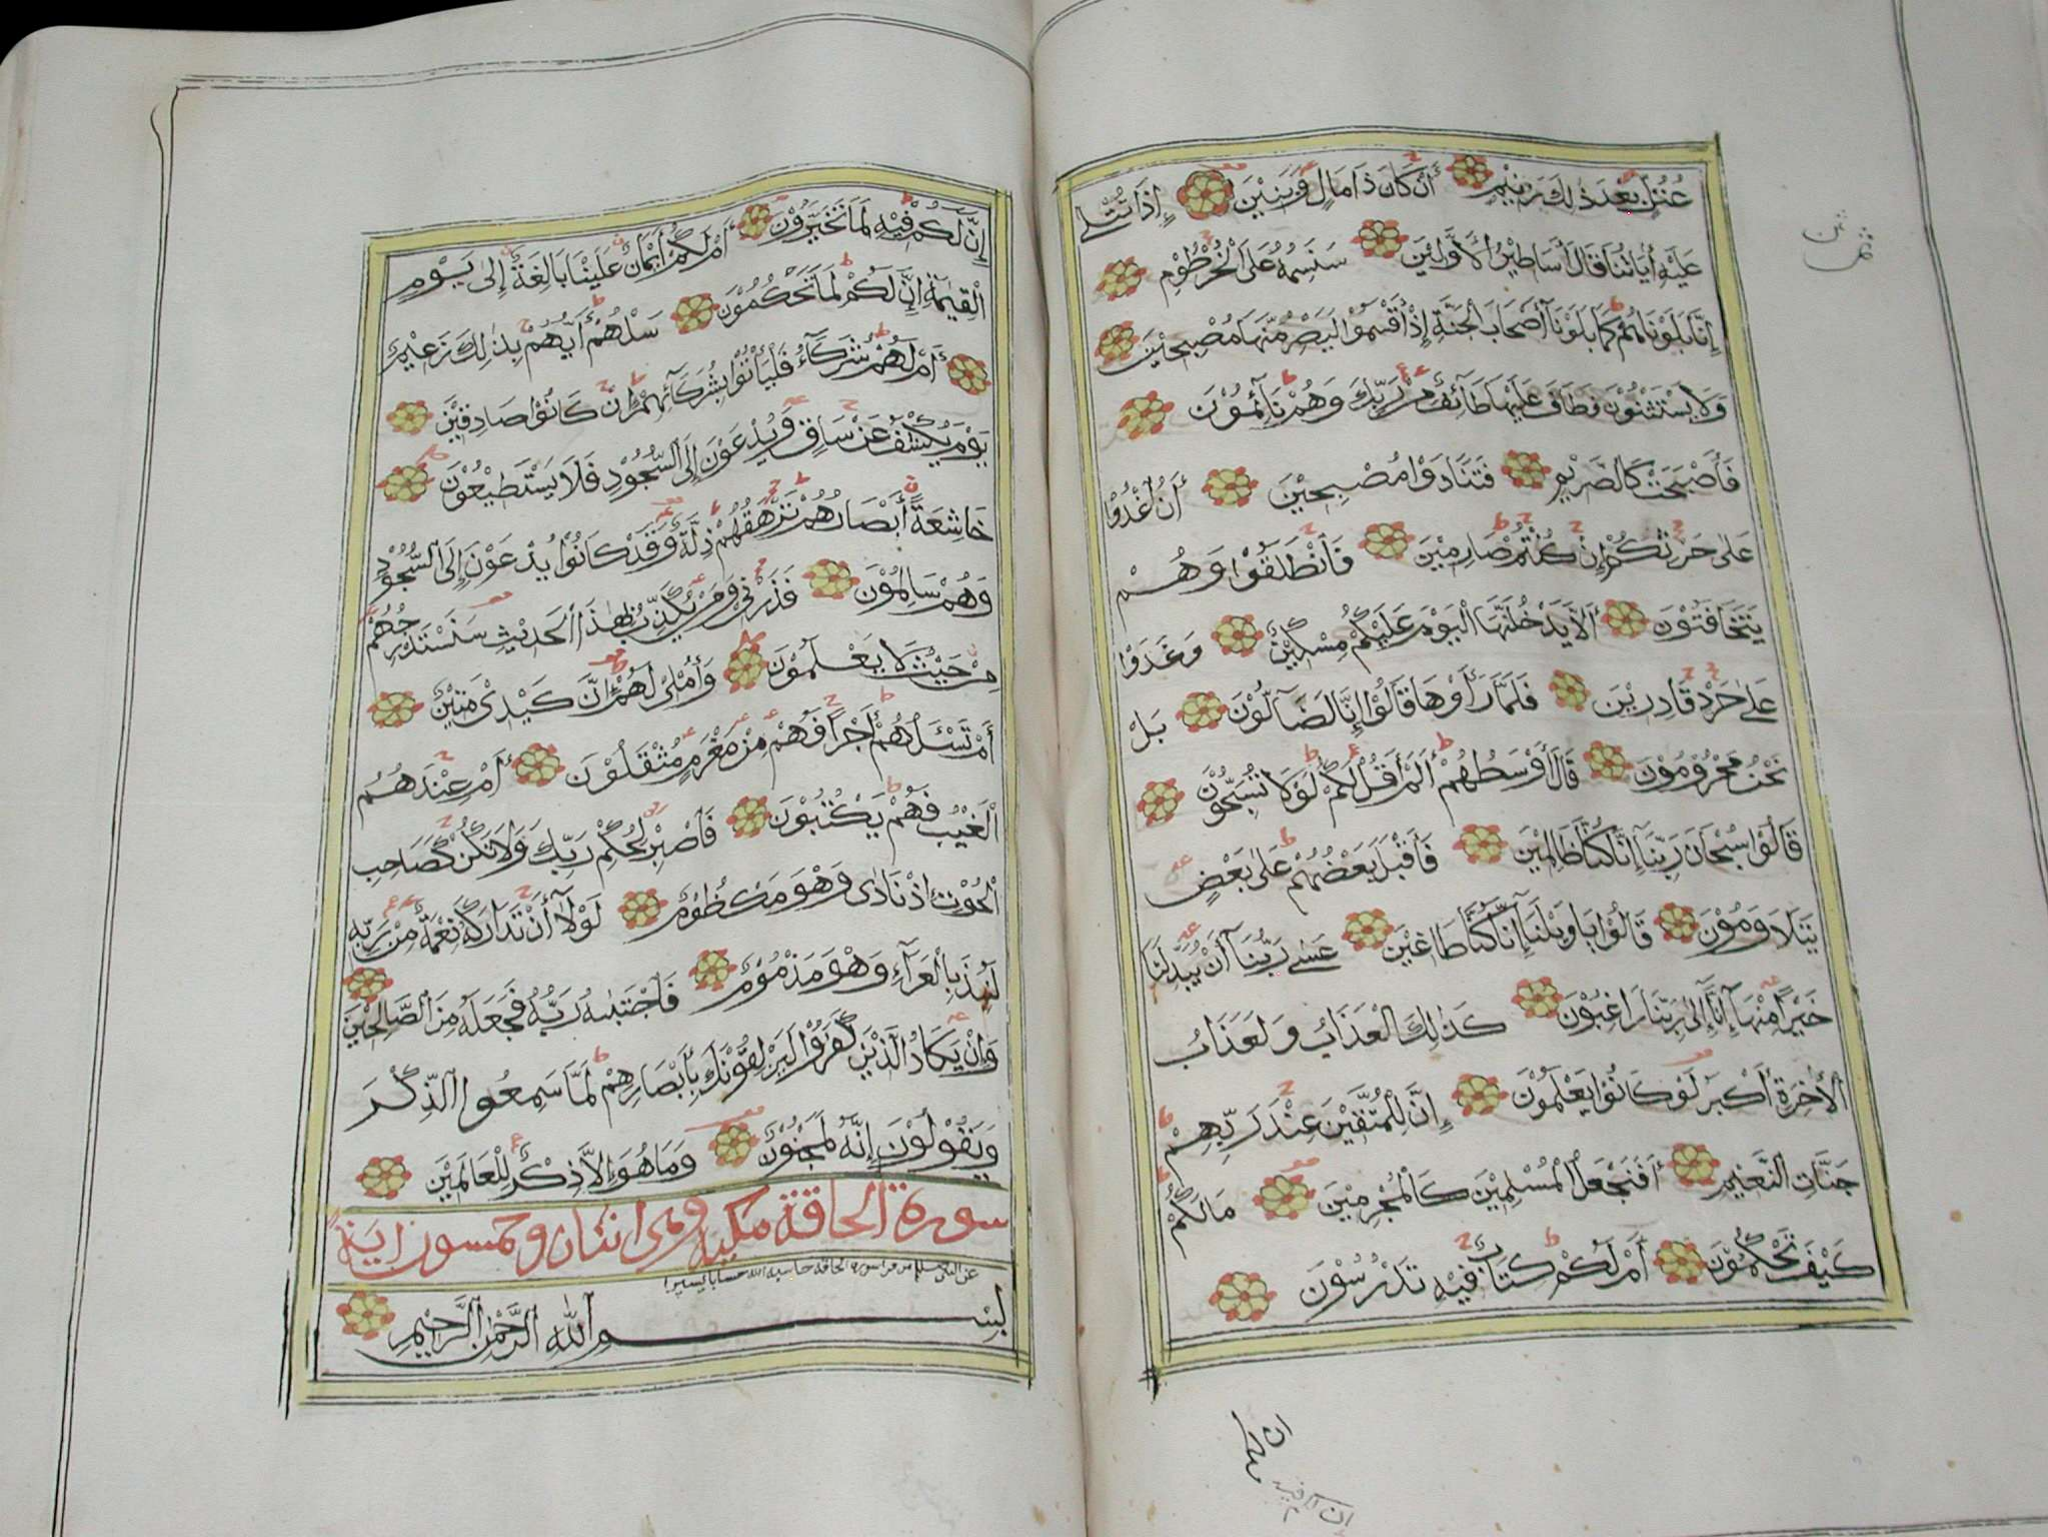 عُتُلٍّ بَعْدَ ذٰلِكَ زَنِيْمٍ أَنْ كَانَ ذَا مَالٍ وَبَنِيْنَ إِذَا تُتْلٰى
عَلَيْهِ أٰيَاتُنَا قَالَ أَسَاطِيْرُ الْأَوَّلِيْنَ سَنَسِمُهُ عَلَى الْخُرْطُوْمِ
إِنَّا بَلَوْنَاهُمْ كَمَا بَلَوْنَآ أَصْحَابَ الْجَنَّةِ إِذْ أَقْسَمُوْا لَيَصْرِمُنَّهَا مُصْبِحِيْنَ
وَلَا يَسْتَثْنُوْنَ فَطَافَ عَلَيْهَا طَآئِفٌ مِنْ رَبِّكَ وَهُمْ نَآئِمُوْنَ
فَأَصْبَحَتْ كَالصَّرِيْمِ فَتَنَادَوْا مُصْبِحِيْنَ أَنُ اغْدُوْا
عَلٰى حَرْثِكُمْ إِنْ كُنْتُمْ صَارِمِيْنَ فَانْطَلَقُوْا وَهُمْ
يَتَخَافَتُوْنَ أَلَّا يَدْخُلَنَّهَا الْيَوْمَ عَلَيْكُمْ مِسْكِيْنٌ وَغَدَوْا
عَلٰى حَرْدٍ قَادِرِيْنَ فَلَمَّا رَأَوْهَا قَالُوْا إِنَّا لَضَآلُّوْنَ بَلْ
نَحْنُ مَحْرُوْمُوْنَ قَالَ أَوْسَطُهُمْ أَلَمْ أَقُلْ لَكُمْ لَوْلَا تُسَبِّحُوْنَ
قَالُوْا سُبْحَانَ رَبِّنَآ إِنَّا كُنَّا ظَالِمِيْنَ فَأَقْبَلَ بَعْضُهُمْ عَلٰى بَعْضٍ
يَتَلَاوَمُوْنَ قَالُوْا يَا وَيْلَنَآ إِنَّا كُنَّا طَاغِيْنَ عَسٰى رَبُّنَآ أَنْ يُبَدِّلَنَا
خَيْرًا مِنْهَآ إِنَّآ إِلٰى رَبِّنَا رَاغِبُوْنَ كَذٰلِكَ الْعَذَابُ وَلَعَذَابُ
الْأٰخِرَةِ أَكْبَرُ لَوْ كَانُوْا يَعْلَمُوْنَ إِنَّ لِلْمُتَّقِيْنَ عِنْدَ رَبِّهِمْ
جَنَّاتِ النَّعِيْمِ أَفَنَجْعَلُ الْمُسْلِمِيْنَ كَالْمُجْرِمِيْنَ مَا لَكُمْ
كَيْفَ تَحْكُمُوْنَ أَمْ لَكُمْ كِتَابٌ فِيْهِ تَدْرُسُوْنَ
ثمن
إن لكم فيه
إِنَّ لَكُمْ فِيْهِ لَمَا تَخَيَّرُوْنَ أَمْ لَكُمْ أَيْمَانٌ عَلَيْنَا بَالِغَةٌ إِلٰى يَوْمِ
الْقِيٰمَةِ إِنَّ لَكُمْ لَمَا تَحْكُمُوْنَ سَلْهُمْ أَيُّهُمْ بِذٰلِكَ زَعِيْمٌ
أَمْ لَهُمْ شُرَكَآءُ فَلْيَأْتُوْا بِشُرَكَآئِهِمْ إِنْ كَانُوْا صَادِقِيْنَ
يَوْمَ يُكْشَفُ عَنْ سَاقٍ وَيُدْعَوْنَ إِلَى السُّجُوْدِ فَلَا يَسْتَطِيْعُوْنَ
خَاشِعَةً أَبْصَارُهُمْ تَرْهَقُهُمْ ذِلَّةٌ وَقَدْ كَانُوْا يُدْعَوْنَ إِلَى السُّجُوْدِ
وَهُمْ سَالِمُوْنَ فَذَرْنِيْ وَمَنْ يُكَذِّبُ بِهٰذَا الْحَدِيْثِ سَنَسْتَدْرِجُهُمْ
مِنْ حَيْثُ لَا يَعْلَمُوْنَ وَأُمْلِيْ لَهُمْ إِنَّ كَيْدِيْ مَتِيْنٌ
أَمْ تَسْـَٔلُهُمْ أَجْرًا فَهُمْ مِنْ مَغْرَمٍ مُثْقَلُوْنَ أَمْ عِنْدَهُمُ
الْغَيْبُ فَهُمْ يَكْتُبُوْنَ فَاصْبِرْ لِحُكْمِ رَبِّكَ وَلَا تَكُنْ كَصَاحِبِ
الْحُوْتِ إِذْ نَادٰى وَهْوَ مَكْظُوْمٌ لَوْلَآ أَنْ تَدَارَكَهُ نِعْمَةٌ مِنْ رَبِّهِ
لَنُبِذَ بِالْعَرَآءِ وَهْوَ مَذْمُوْمٌ فَاجْتَبٰىهُ رَبُّهُ فَجَعَلَهُ مِنَ الصَّالِحِيْنَ
وَإِنْ يَكَادُ الَّذِيْنَ كَفَرُوْا لَيُزْلِقُوْنَكَ بِأَبْصَارِهِمْ لَمَّا سَمِعُوا الذِّكْرَ
وَيَقُوْلُوْنَ إِنَّهُ لَمَجْنُوْنٌ وَمَا هُوَ إِلَّا ذِكْرٌ لِلْعَالَمِيْنَ
سورة الحاقة مكية وهي اثنتان وخمسون اية
عن النبي صلعم من قرأ سورة الحاقة حاسبه الله حسابا يسيرا
بِسْمِ اللّٰهِ الرَّحْمٰنِ الرَّحِيْمِ